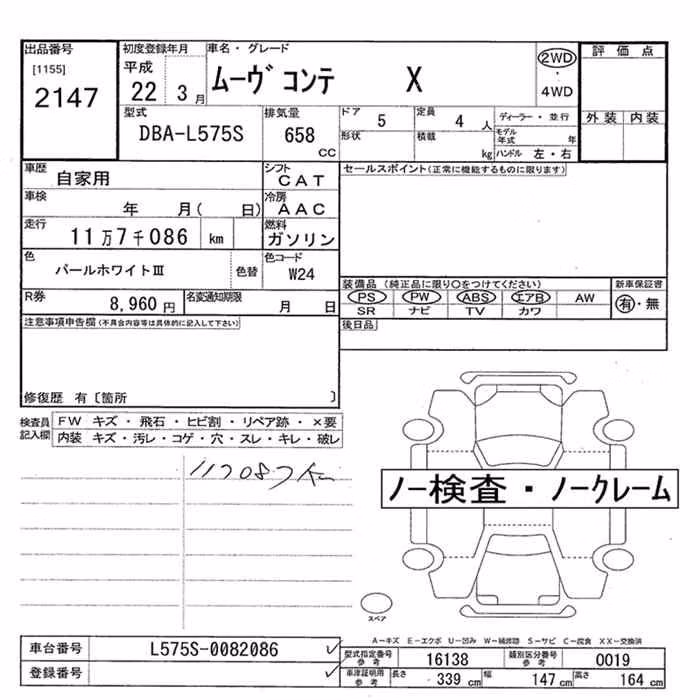 出品番号
[1155]
2147
初度登録年月
平成
22 3月
車名・グレード
ムーヴ コンテ X
2WD
・
4WD
評価点
外装 内装
型式
DBA-L575S
排気量
658
CC
ドア 5
定員 4 人
形状
積載 kg
ディーラー・並行
モデル年式 年
ハンドル 左・右
車歴
自家用
シフト
CAT
車検
年 月( 日)
冷房
AAC
走行
11万7千086 km
燃料
ガソリン
色
パールホワイトⅢ
色替
色コード
W24
R券
8,960 円
名変通知期限
月 日
セールスポイント(正常に機能するものに限ります)
装備品(純正品に限り○をつけてください)
PS PW ABS エアB AW
SR ナビ TV カワ
新車保証書
有・無
後日品
注意事項申告欄(不具合内容等は具体的に記入して下さい)
修復歴 有〔箇所 〕
検査員記入欄
FW キズ・飛石・ヒビ割・リペア跡・×要
内装 キズ・汚レ・コゲ・穴・スレ・キレ・破レ
117087㎞
ノー検査・ノークレーム
スペア
A-キズ E-エクボ U-凹み W-補修跡 S-サビ C-腐食 XX-交換済
車台番号 L575S-0082086
登録番号
型式指定番号参考 16138
類別区分番号参考 0019
車庫証明用参考 長さ 339 cm 幅 147 cm 高さ 164 cm